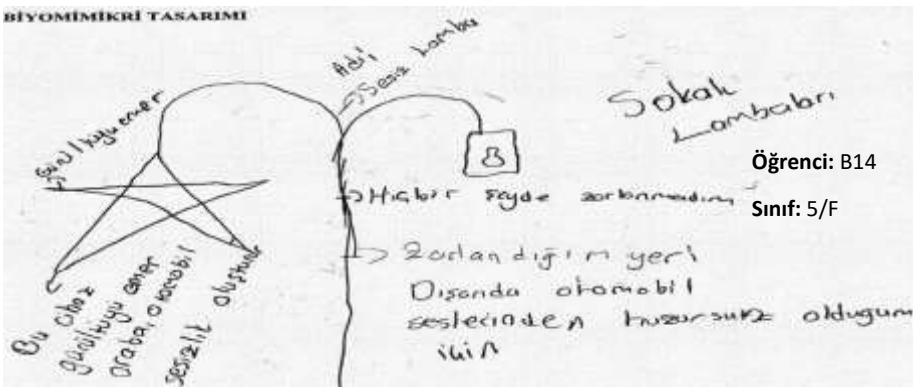 BİYOMİMİKRİ TASARIMI
Adı
Sesiz Lamba
Sokak
Lambaları
gürültüyü emer
Öğrenci: B14
Sınıf: 5/F
Hiçbir şeyde zorlanmadım
Zorlandığım yeri
Dışarıda otomobil
seslerinden huzursuz olduğum
için
Bu cihaz
gürültüyü emer
araba, otomobil
sesizlik oluşturur